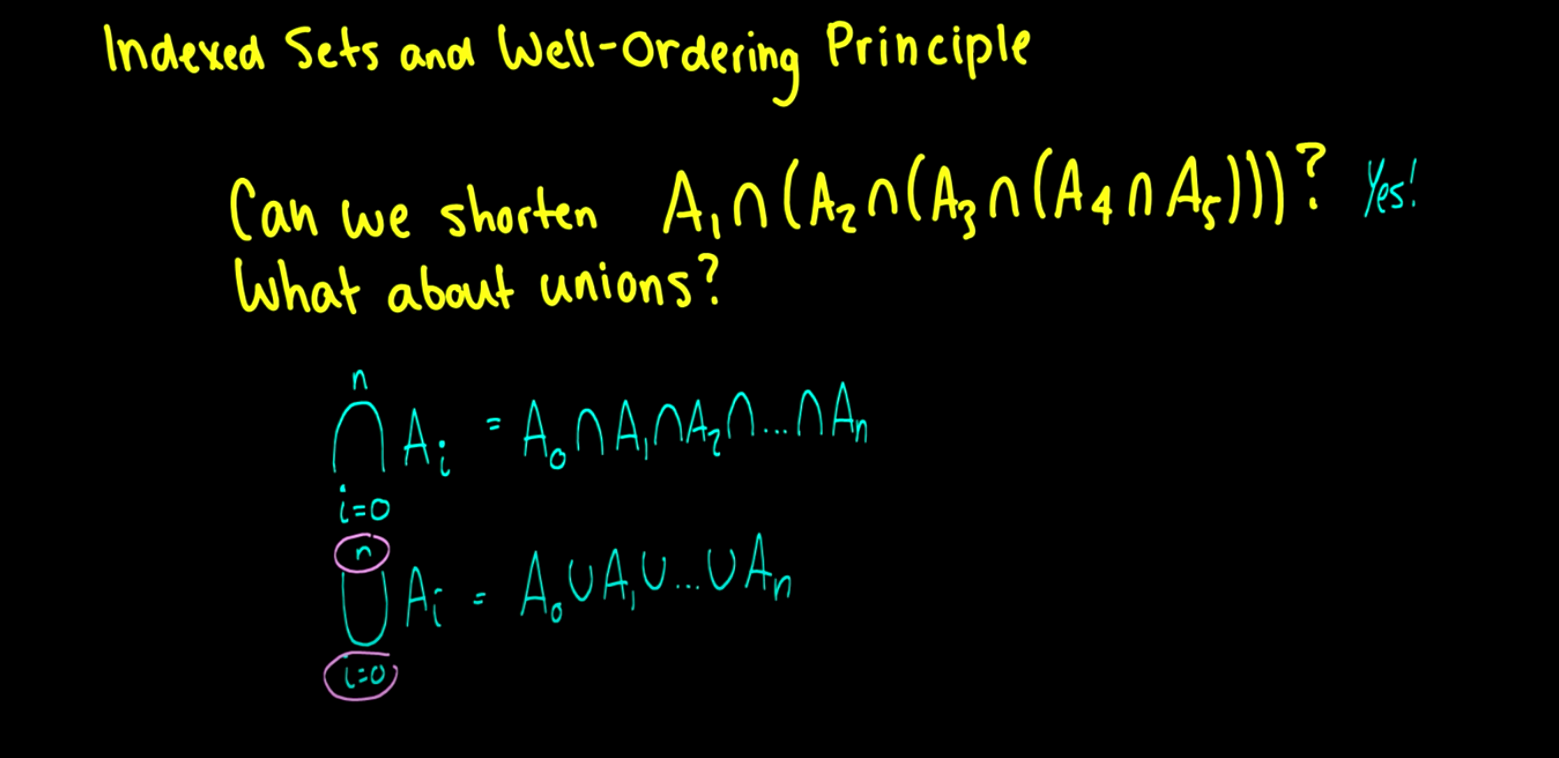 Indexed Sets and Well-Ordering Principle
Can we shorten A₁∩(A₂∩(A₃∩(A₄∩A₅)))? Yes!
What about unions?
n
⋂ Aᵢ = A₀∩A₁∩A₂∩...∩Aₙ
i=0
n
⋃ Aᵢ = A₀∪A₁∪...∪Aₙ
i=0